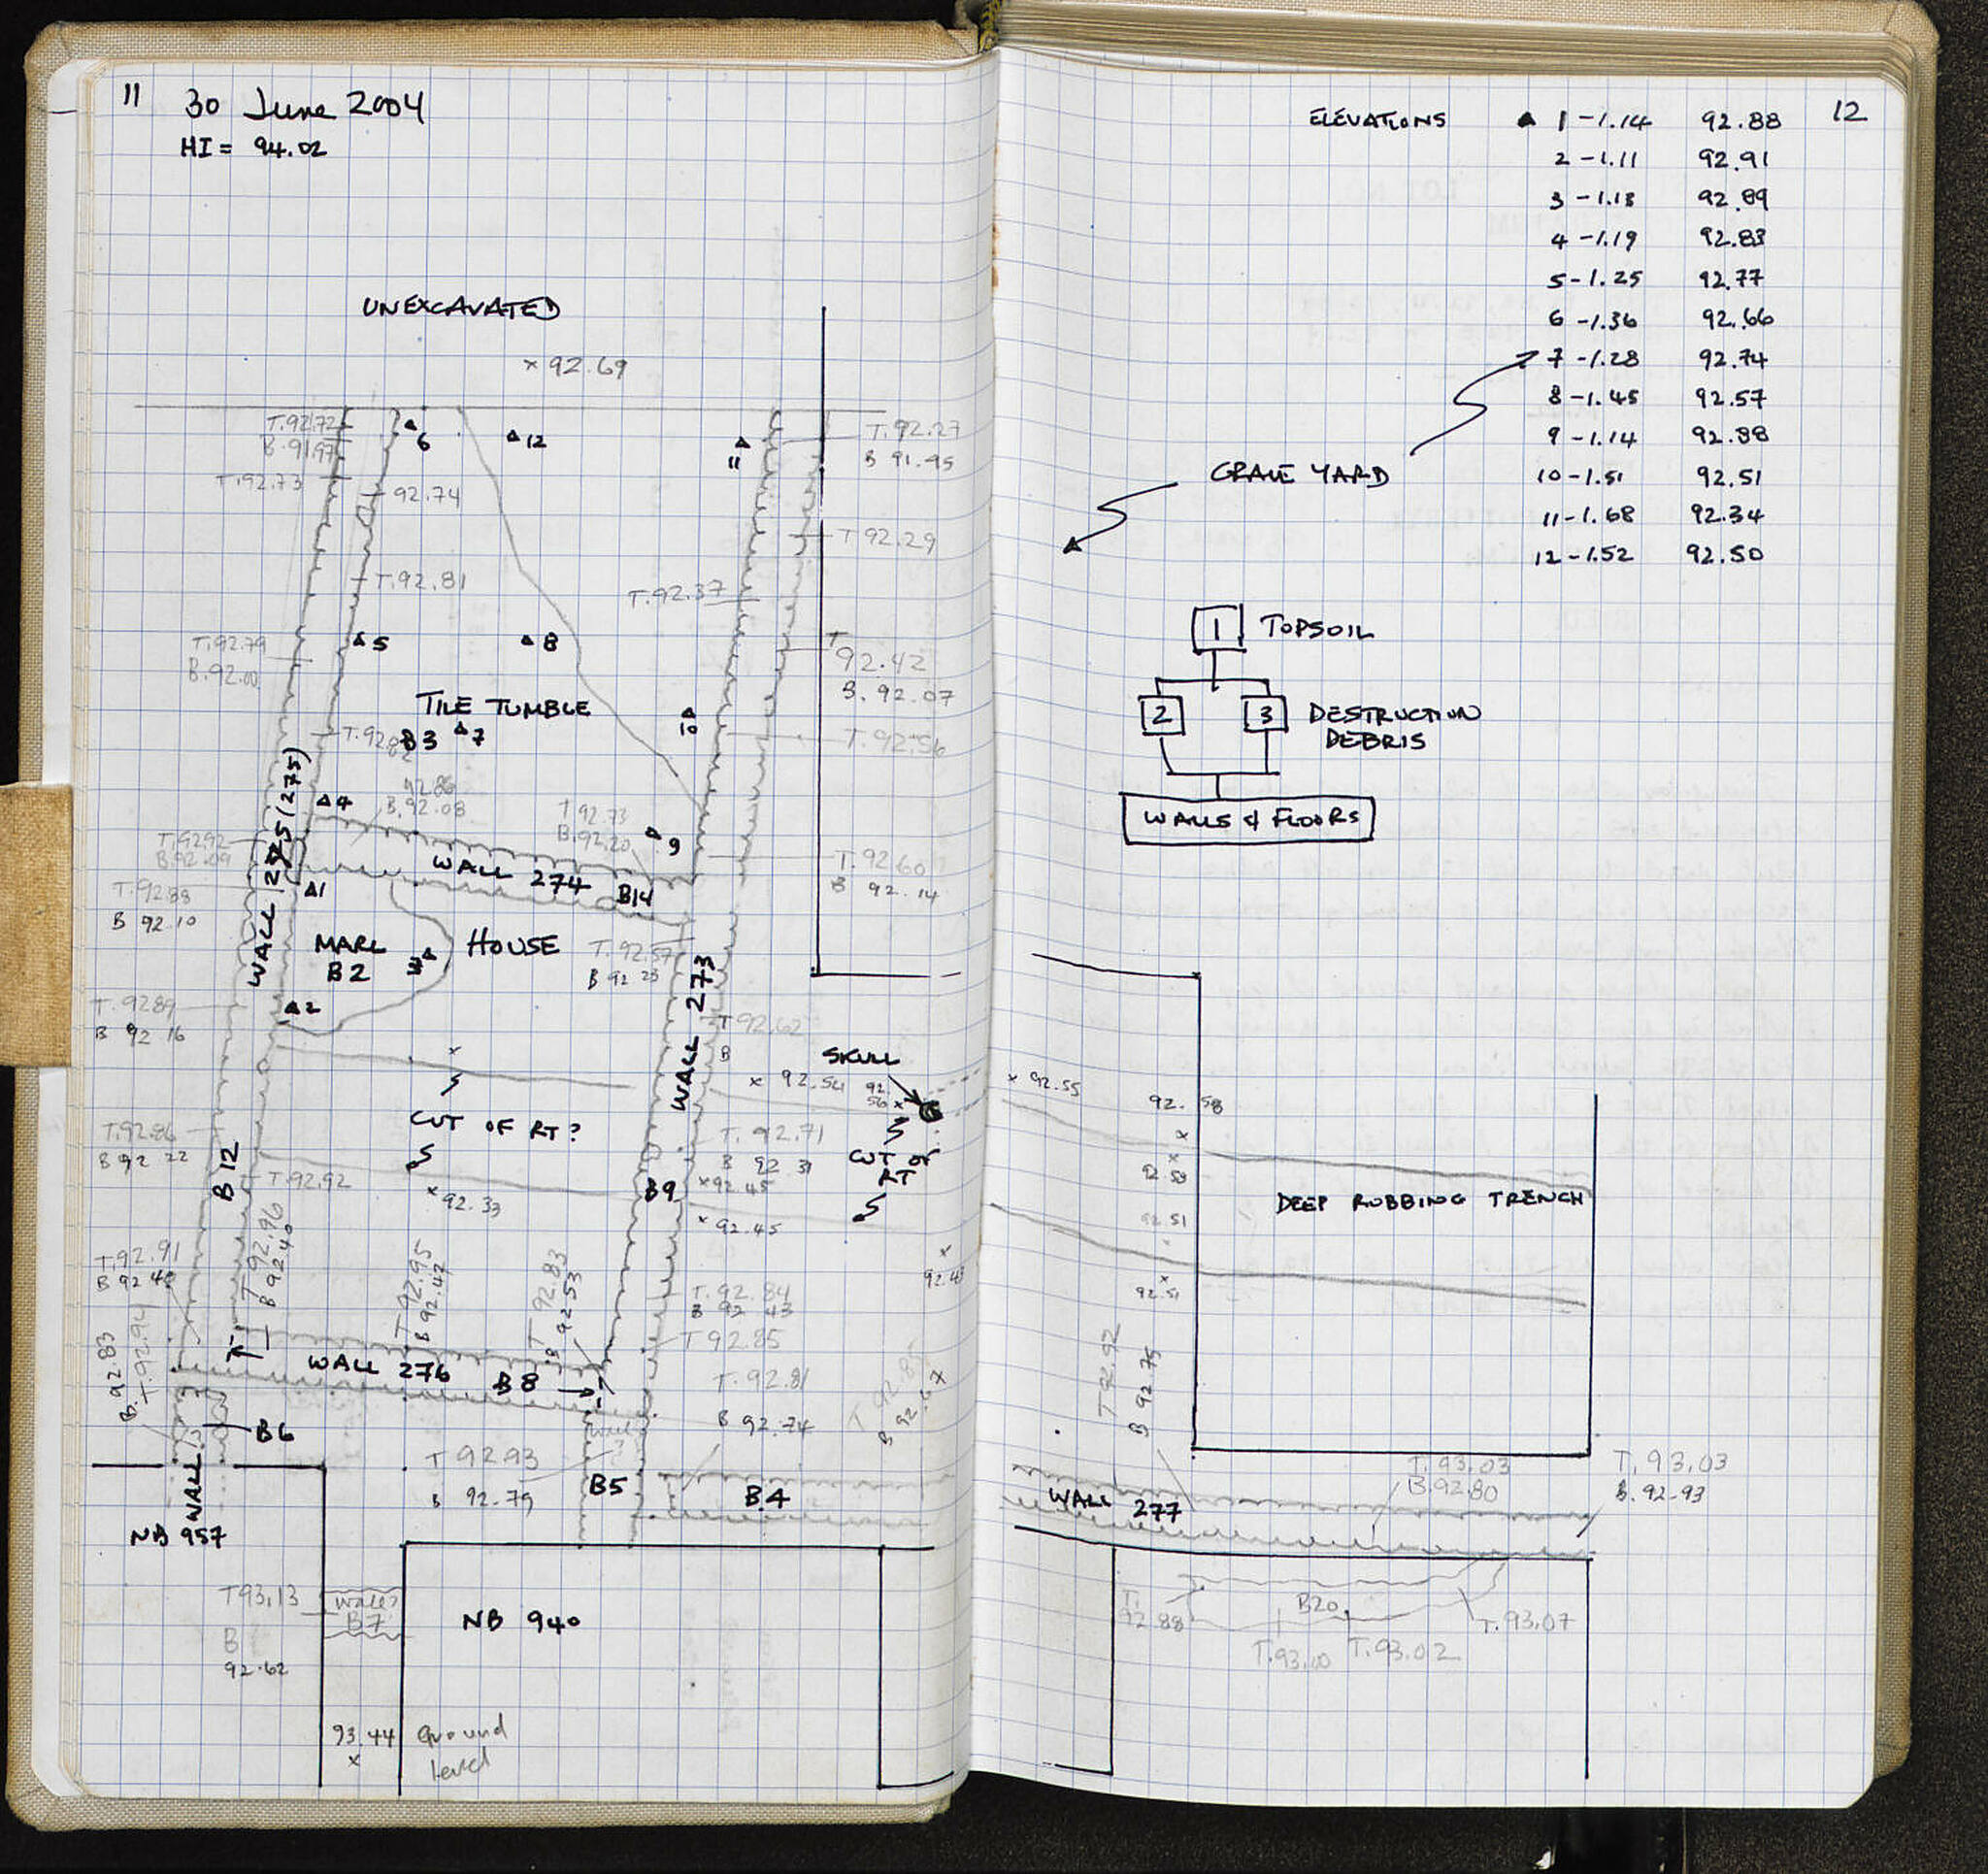 11
30 June 2004
HI = 94.02
UNEXCAVATED
× 92.69
T.92.72
B.91.97
6
12
11
T.92.27
B 91.95
T.92.73
92.74
T 92.29
T.92.81
T.92.37
T.92.79
B.92.00
5
8
T
92.42
B. 92.07
TILE TUMBLE
B3
7
10
T.92.56
4
92.86
B.92.08
T 92.73
B.92.20
9
T.92.92
B 92.09
WALL 274 B14
T.92.60
B 92.14
T.92.88
B 92 10
1
WALL
(275)
MARL
B2
3
HOUSE
T. 92.57
B 92 23
WALL 273
T. 92.89
B 92 16
2
T 92.62
B
SKULL
× 92.54
92.
56 ×
T.92.86
B 92 22
CUT OF RT?
T. 92.71
B 92 31
CUT OF
RT
B 12
T.92.92
× 92.33
B9
×92.45
× 92.45
×
92.43
T.92.91
B 92 40
T 92.96
B 92.40
T 92.95
B 92.42
T 92.83
B 92.53
T. 92.84
B 92 43
T 92.85
B. 92.83
T. 92.94
WALL 276
B8
T. 92.81
B 92.74
B6
WALL
T 92.93
B 92.79
B5
B4
NB 957
T93.13
B
92.62
wall?
B7
NB 940
93.44
×
Ground
level
12
ELEVATIONS
1 -1.14 92.88
2 -1.11 92.91
3 -1.13 92.89
4 -1.19 92.83
5 -1.25 92.77
6 -1.36 92.66
7 -1.28 92.74
8 -1.45 92.57
9 -1.14 92.88
10 -1.51 92.51
11 -1.68 92.34
12 -1.52 92.50
GRAVE YARD
1 TOPSOIL
2 3 DESTRUCTION
DEBRIS
WALLS & FLOORS
× 92.55
92. 58
×
×
92.53
92.51
×
92.51
DEEP ROBBING TRENCH
T 92.92
B 92.75
T. 93.03
B.92.80
T. 93.03
B. 92-93
WALL 277
T.
92.88
B20
T.93.10
T.93.02
T.93.07